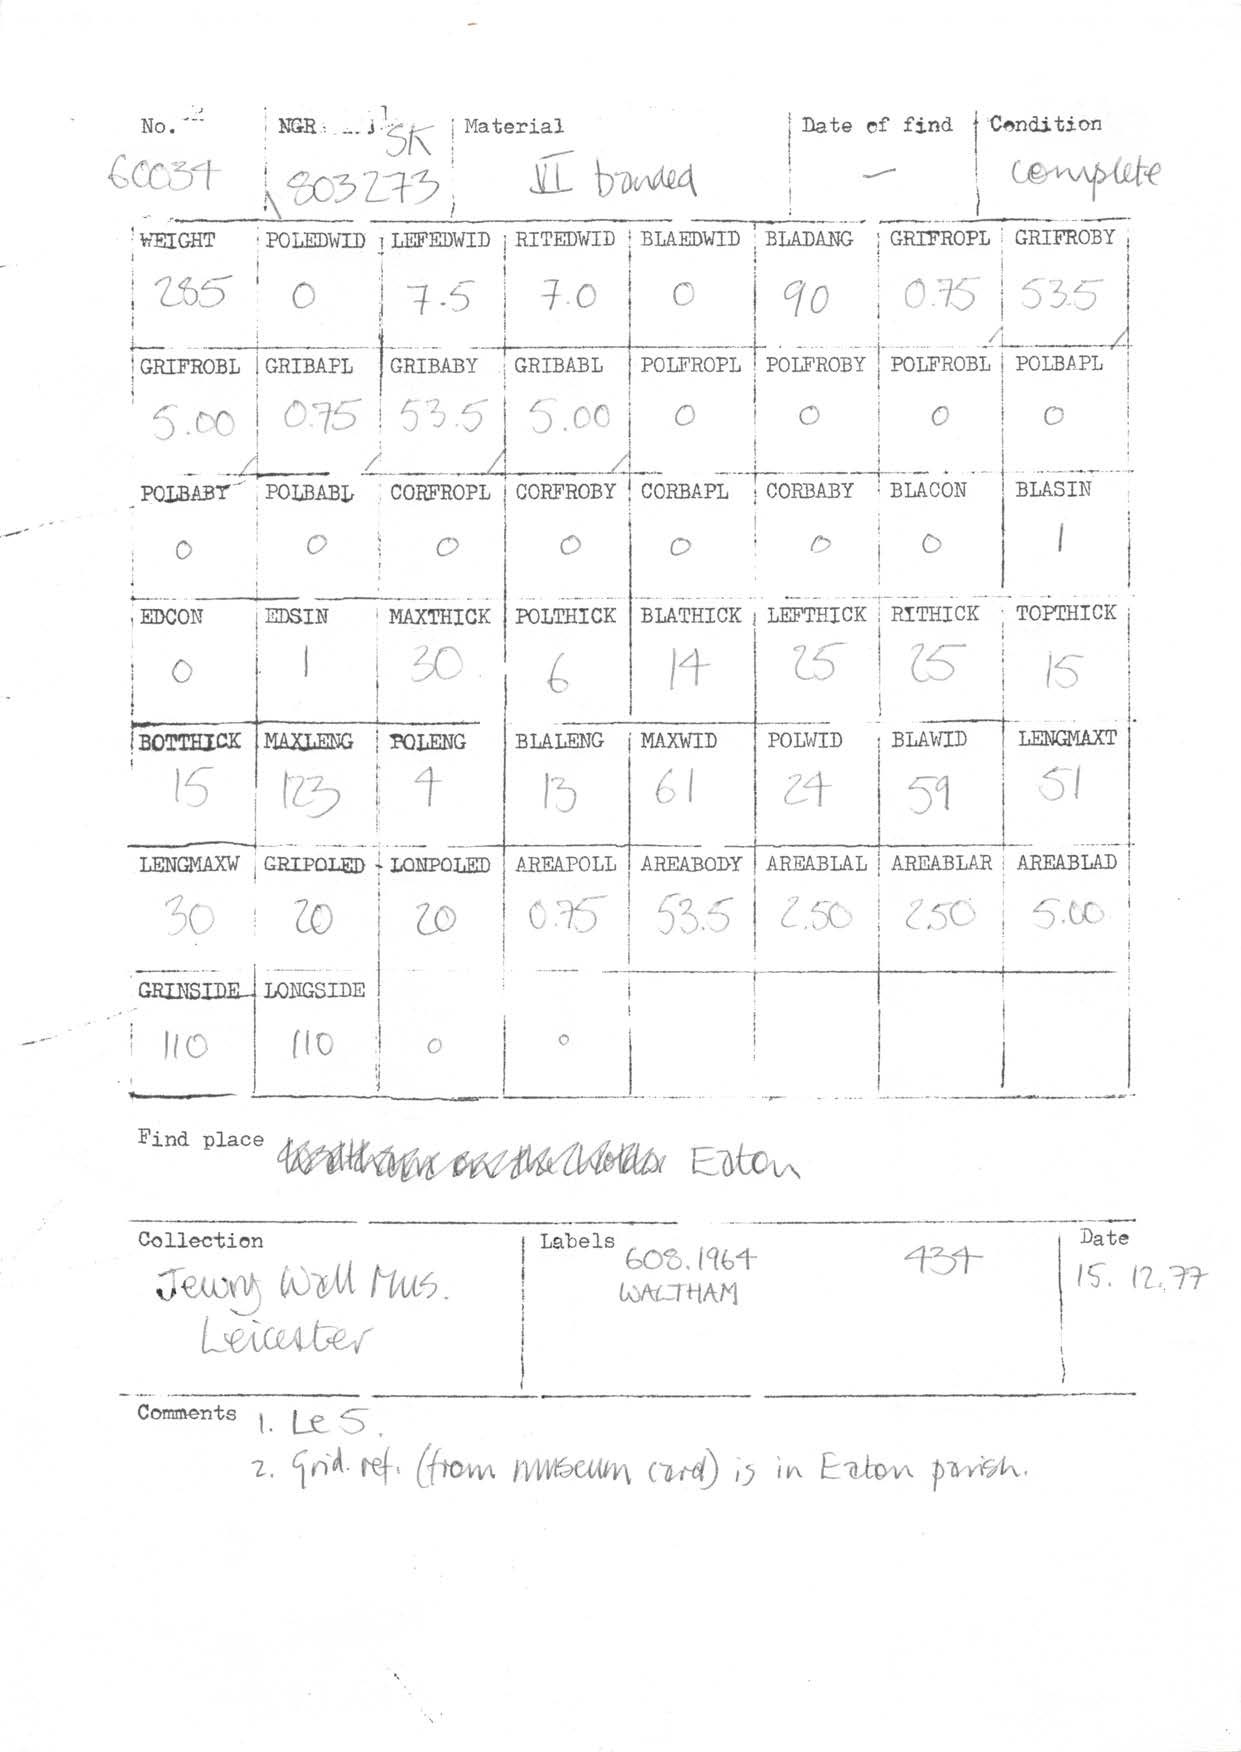 No. NGR SK Material Date of find Condition
60034 803273 VI banded — complete
WEIGHT POLEDWID LEFEDWID RITEDWID BLAEDWID BLADANG GRIFROPL GRIFROBY
285 0 7.5 7.0 0 90 0.75 53.5
GRIFROBL GRIBAPL GRIBABY GRIBABL POLFROPL POLFROBY POLFROBL POLBAPL
5.00 0.75 53.5 5.00 0 0 0 0
POLBABY POLBABL CORFROPL CORFROBY CORBAPL CORBABY BLACON BLASIN
0 0 0 0 0 0 0 1
EDCON EDSIN MAXTHICK POLTHICK BLATHICK LEFTHICK RITHICK TOPTHICK
0 1 30 6 14 25 25 15
BOTTHICK MAXLENG POLENG BLALENG MAXWID POLWID BLAWID LENGMAXT
15 123 4 13 61 24 59 51
LENGMAXW GRIPOLED LONPOLED AREAPOLL AREABODY AREABLAL AREABLAR AREABLAD
30 20 20 0.75 53.5 2.50 2.50 5.00
GRINSIDE LONGSIDE
110 110 0 0
Find place Eaton
Collection Labels Date
608.1964 434
Jewry Wall Mus. WALTHAM 15. 12.77
Leicester
Comments 1. Le 5.
2. Grid. ref. (from museum card) is in Eaton parish.